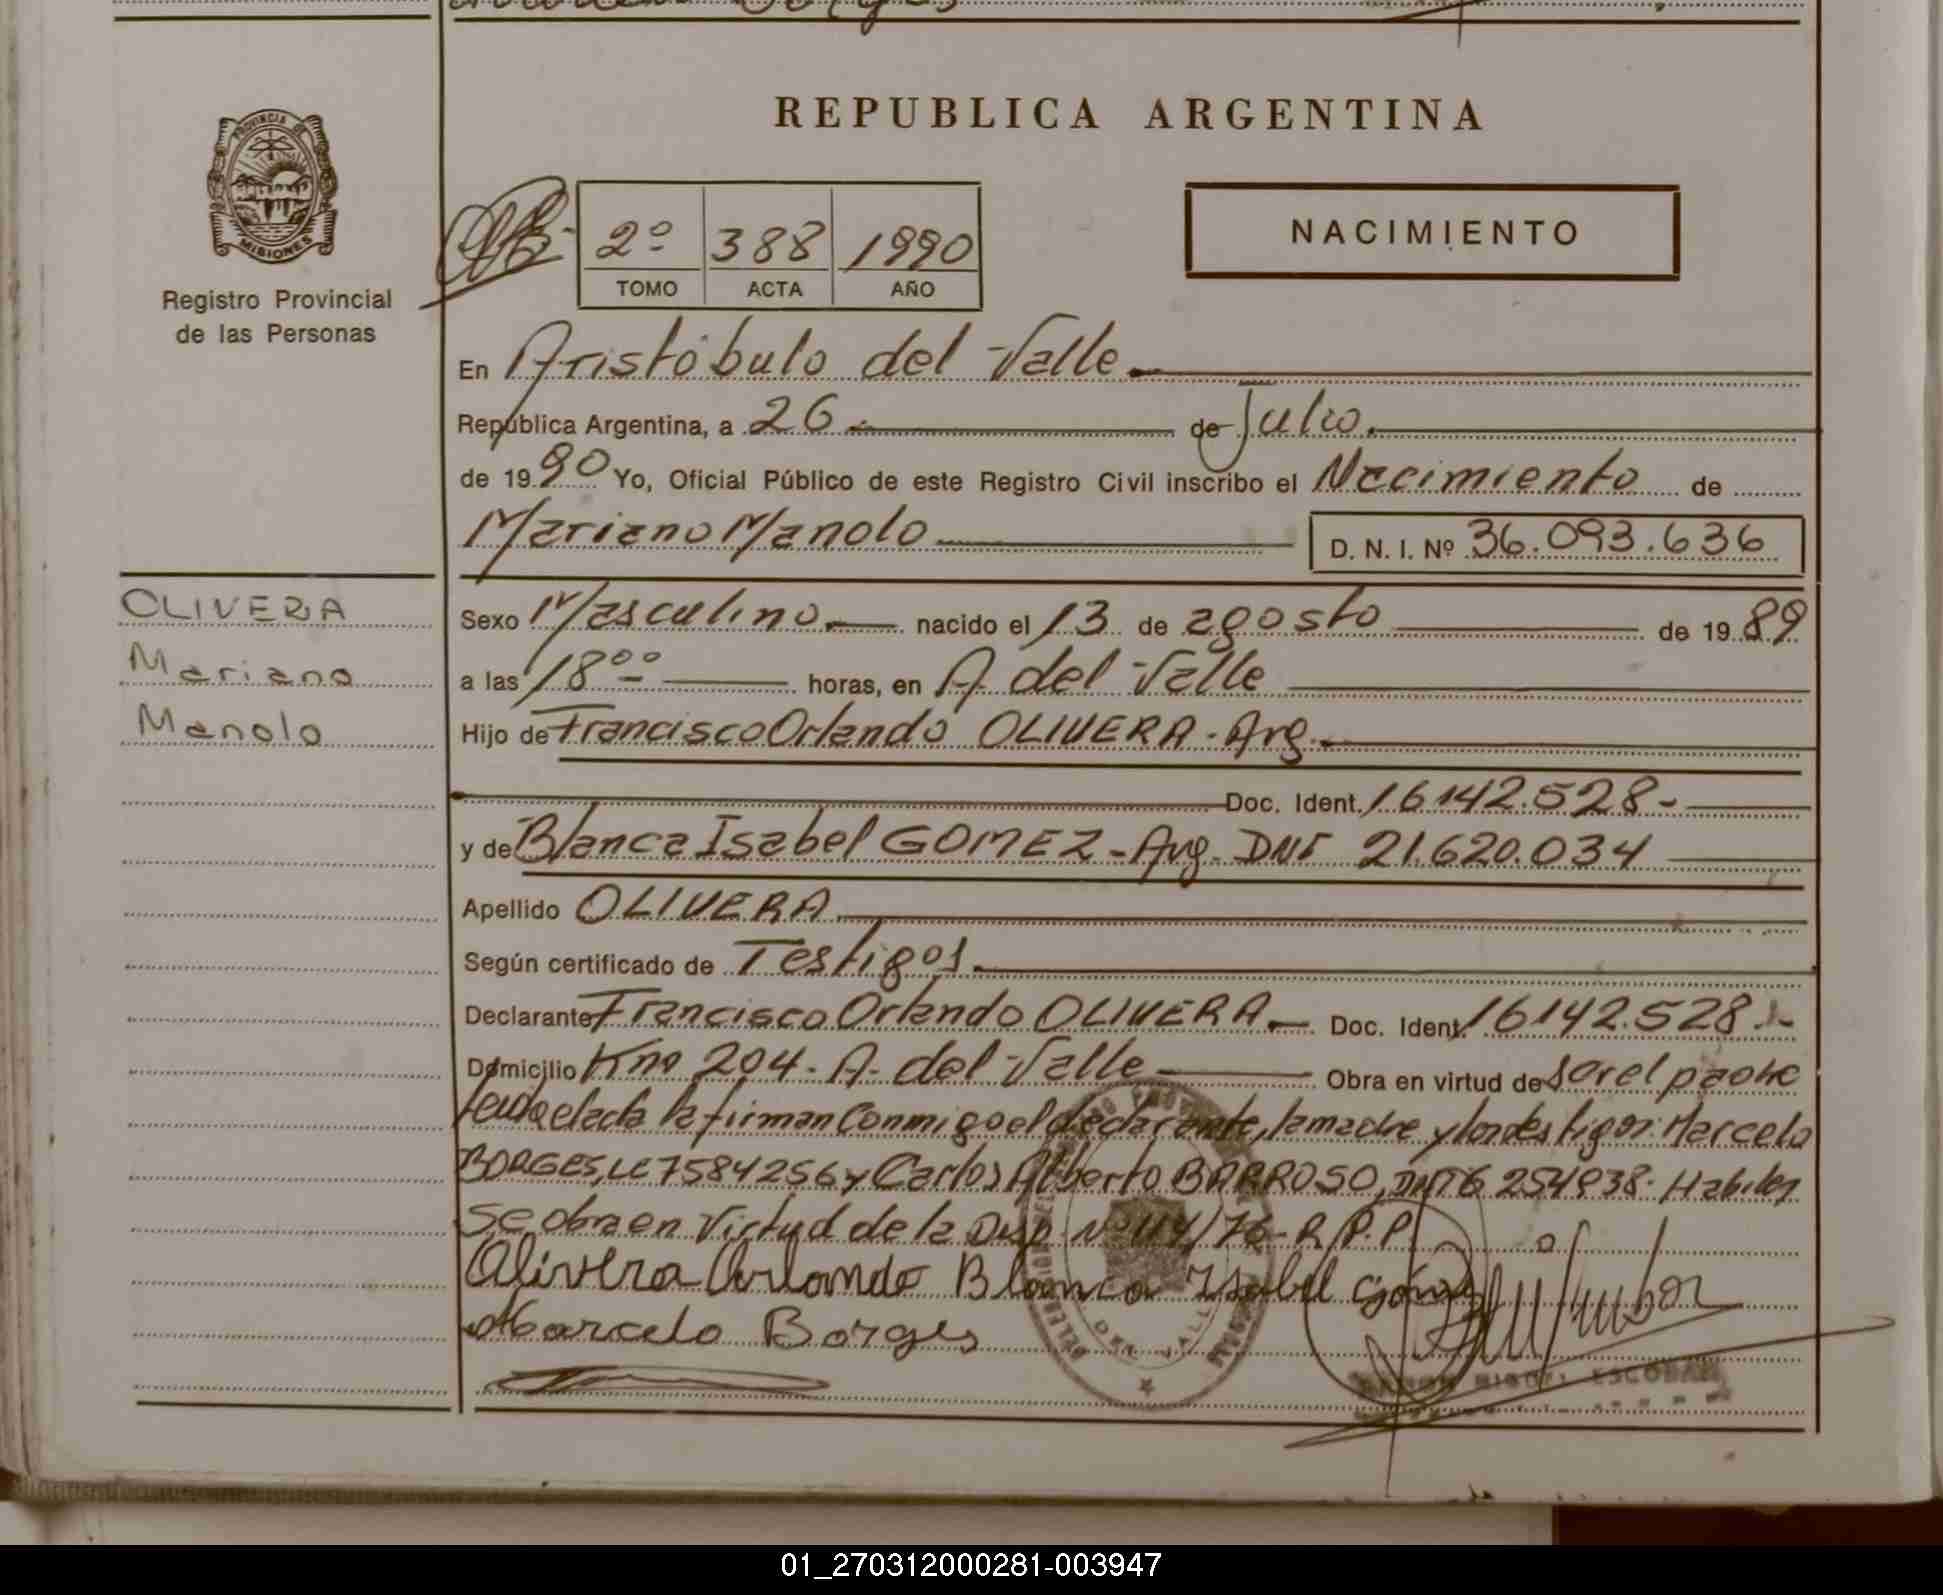 REPUBLICA ARGENTINA
PROVINCIA DE
MISIONES
Registro Provincial
de las Personas
2º 388 1990
TOMO ACTA AÑO
NACIMIENTO
En Aristóbulo del Valle
República Argentina, a 26 de Julio
de 1990 Yo, Oficial Público de este Registro Civil inscribo el Nacimiento de
Mariano Manolo D. N. I. Nº 36.093.636
OLIVERA
Mariano
Manolo
Sexo Masculino nacido el 13 de agosto de 1989
a las 18ºº horas, en A. del Valle
Hijo de Francisco Orlando OLIVERA - Arg.
Doc. Ident. 16142.528-
y de Blanca Isabel GOMEZ - Arg - DNI 21.620.034
Apellido OLIVERA
Según certificado de Testigos
Declarante Francisco Orlando OLIVERA Doc. Ident. 16142.528.-
Domicilio Km 204 - A. del Valle Obra en virtud de ser el padre
Leida el acta la firman conmigo el declarante, la madre y los testigos: Marcelo
BORGES, LE 7584256 y Carlos Alberto BARROSO, DNI 6 254938. Habiles
Se obra en virtud de la Disp. Nº 114/76 - R.P.P.
Olivera Orlando Blanca Isabel Gómez
Marcelo Borges
DEL VALLE
RAMON MIGUEL ESCOBAR
01_270312000281-003947